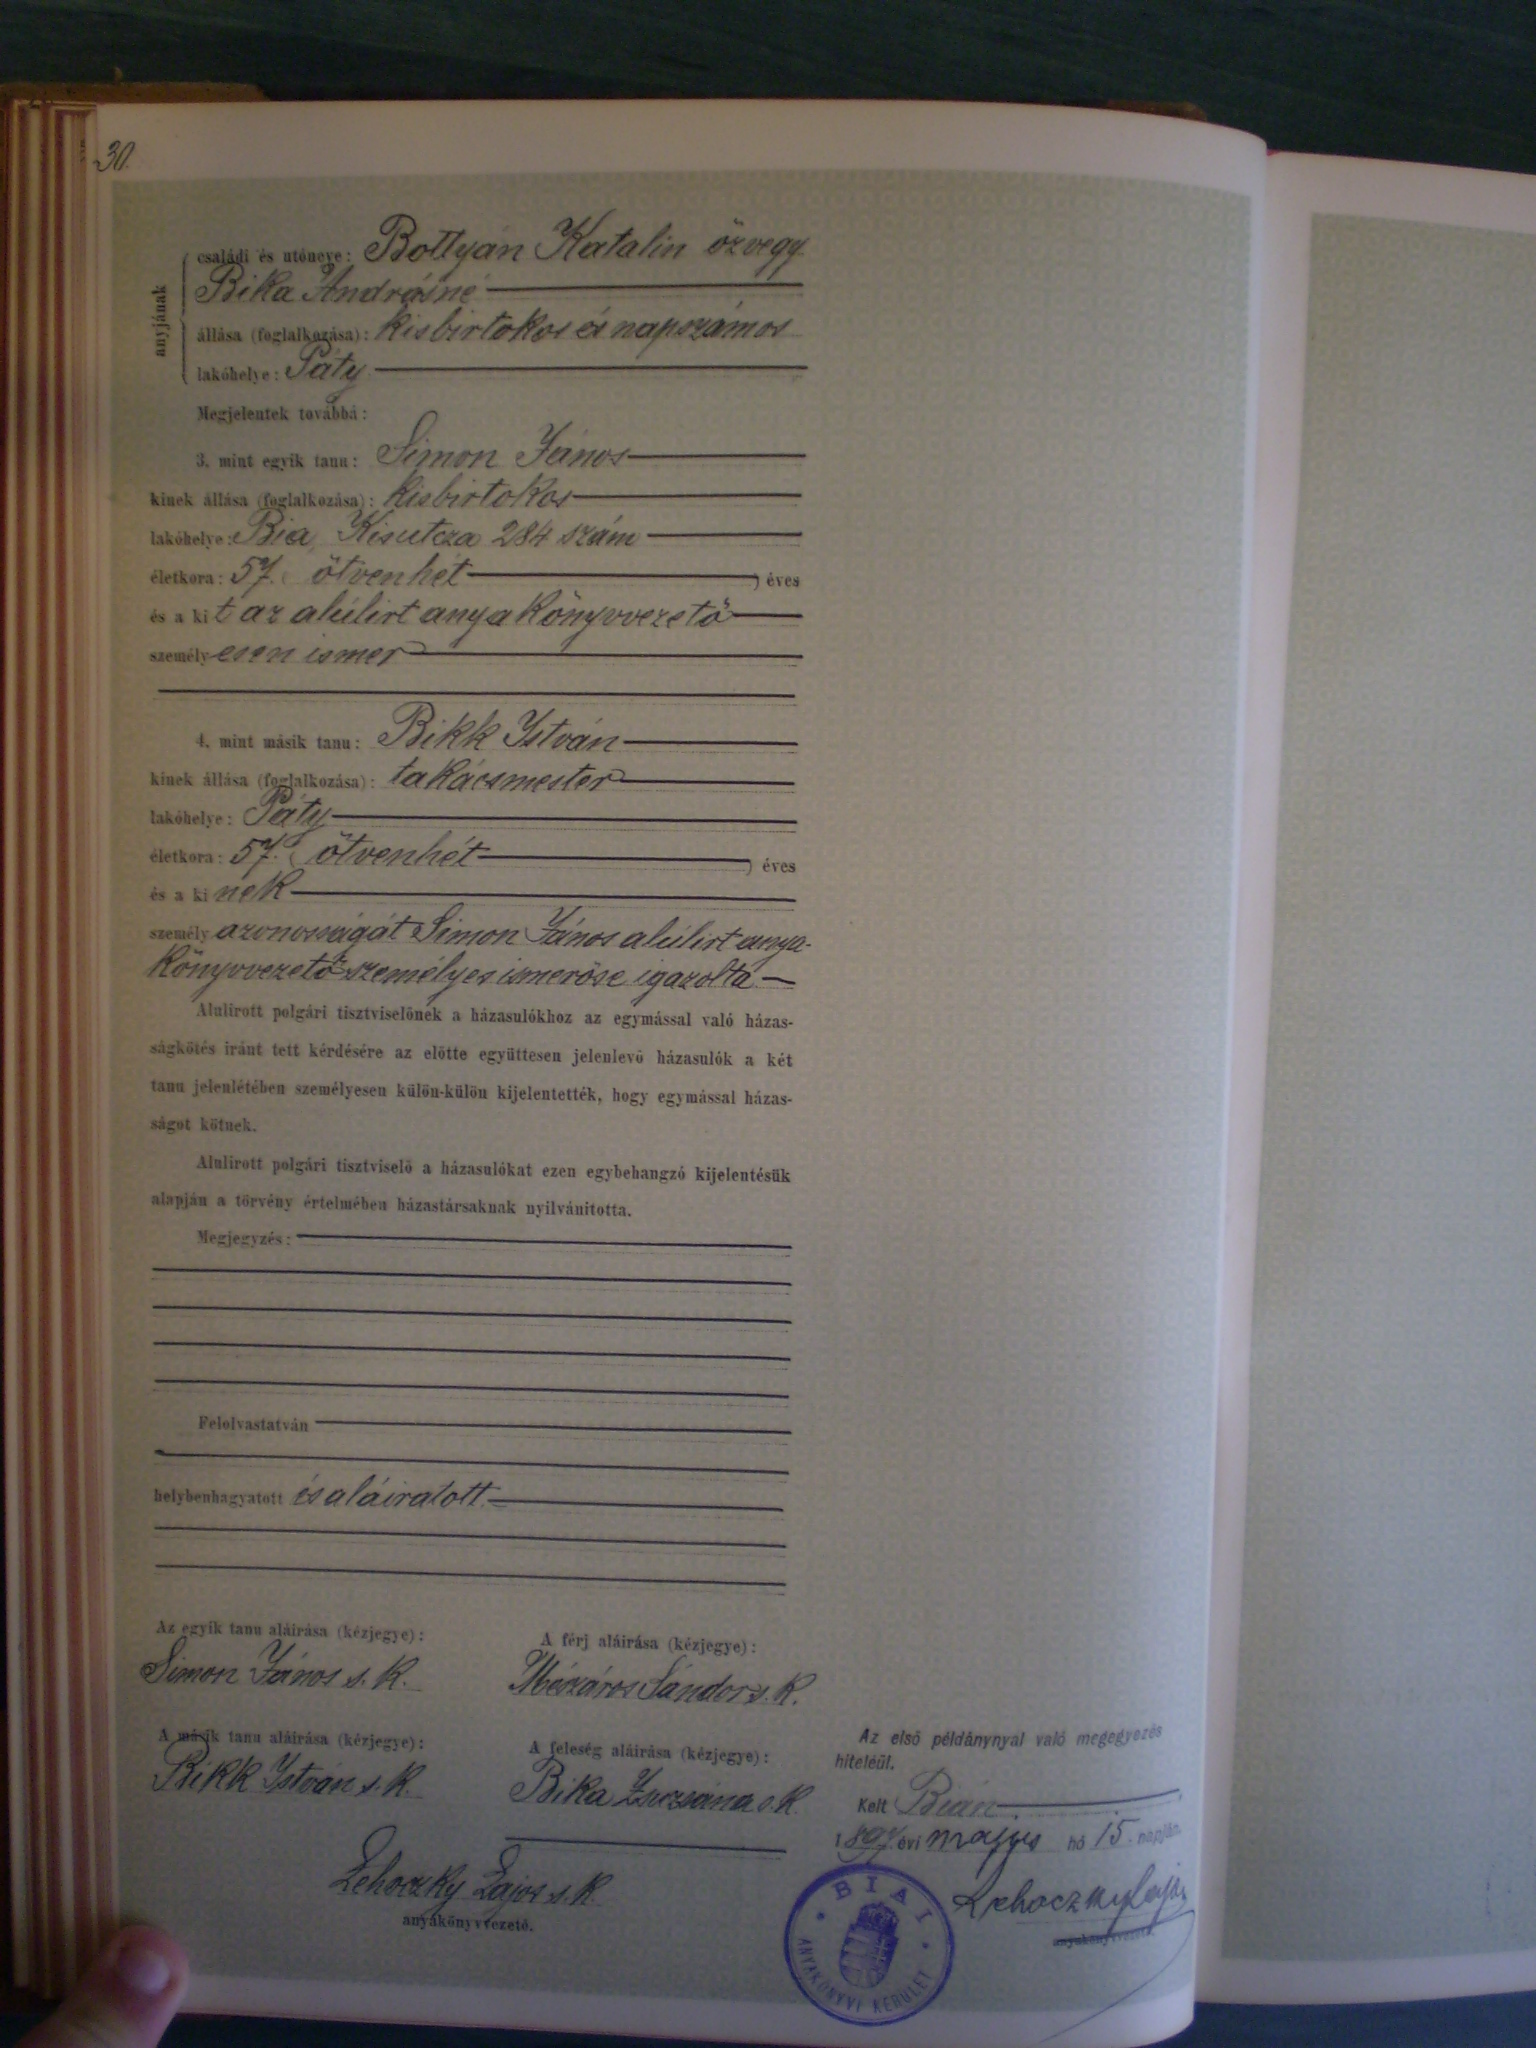 30.
anyjának
családi és utóneve: Bottyán Katalin özvegy
Bika Andrásné
állása (foglalkozása): kisbirtokos és napszámos
lakóhelye: Páty
Megjelentek továbbá:
3. mint egyik tanu: Simon János
kinek állása (foglalkozása): kisbirtokos
lakóhelye: Bia, Kisutcza 284 szám
életkora: 57. (ötvenhét) éves
és a kit az alúlirt anyakönyvvezető
személyesen ismer
4. mint másik tanu: Bikk István
kinek állása (foglalkozása): takácsmester
lakóhelye: Páty
életkora: 57. (ötvenhét) éves
és a kinek
személyazonosságát Simon János alúlirt anya-
könyvvezető személyes ismerőse igazolta
Alulírott polgári tisztviselőnek a házasulókhoz az egymással való házas-
ságkötés iránt tett kérdésére az előtte együttesen jelenlevő házasulók a két
tanu jelenlétében személyesen külön-külön kijelentették, hogy egymással házas-
ságot kötnek.
Alulirott polgári tisztviselő a házasulókat ezen egybehangzó kijelentésük
alapján a törvény értelmében házastársaknak nyilvánitotta.
Megjegyzés:
Felolvastatván
helybenhagyatott és aláiratott.
Az egyik tanu aláirása (kézjegye):
Simon János s. k.
A férj aláirása (kézjegye):
Mészáros Sándor s. k.
A másik tanu aláirása (kézjegye):
Bikk István s. k.
A feleség aláirása (kézjegye):
Bika Zsuzsána s. k.
Lehoczky Lajos s. k.
anyakönyvvezető.
Az első példánynyal való megegyezés
hiteléül.
Kelt Bián
1897. évi május hó 15. napján.
Lehoczky Lajos
anyakönyvvezető.
BIAI
ANYAKÖNYVI KERÜLET